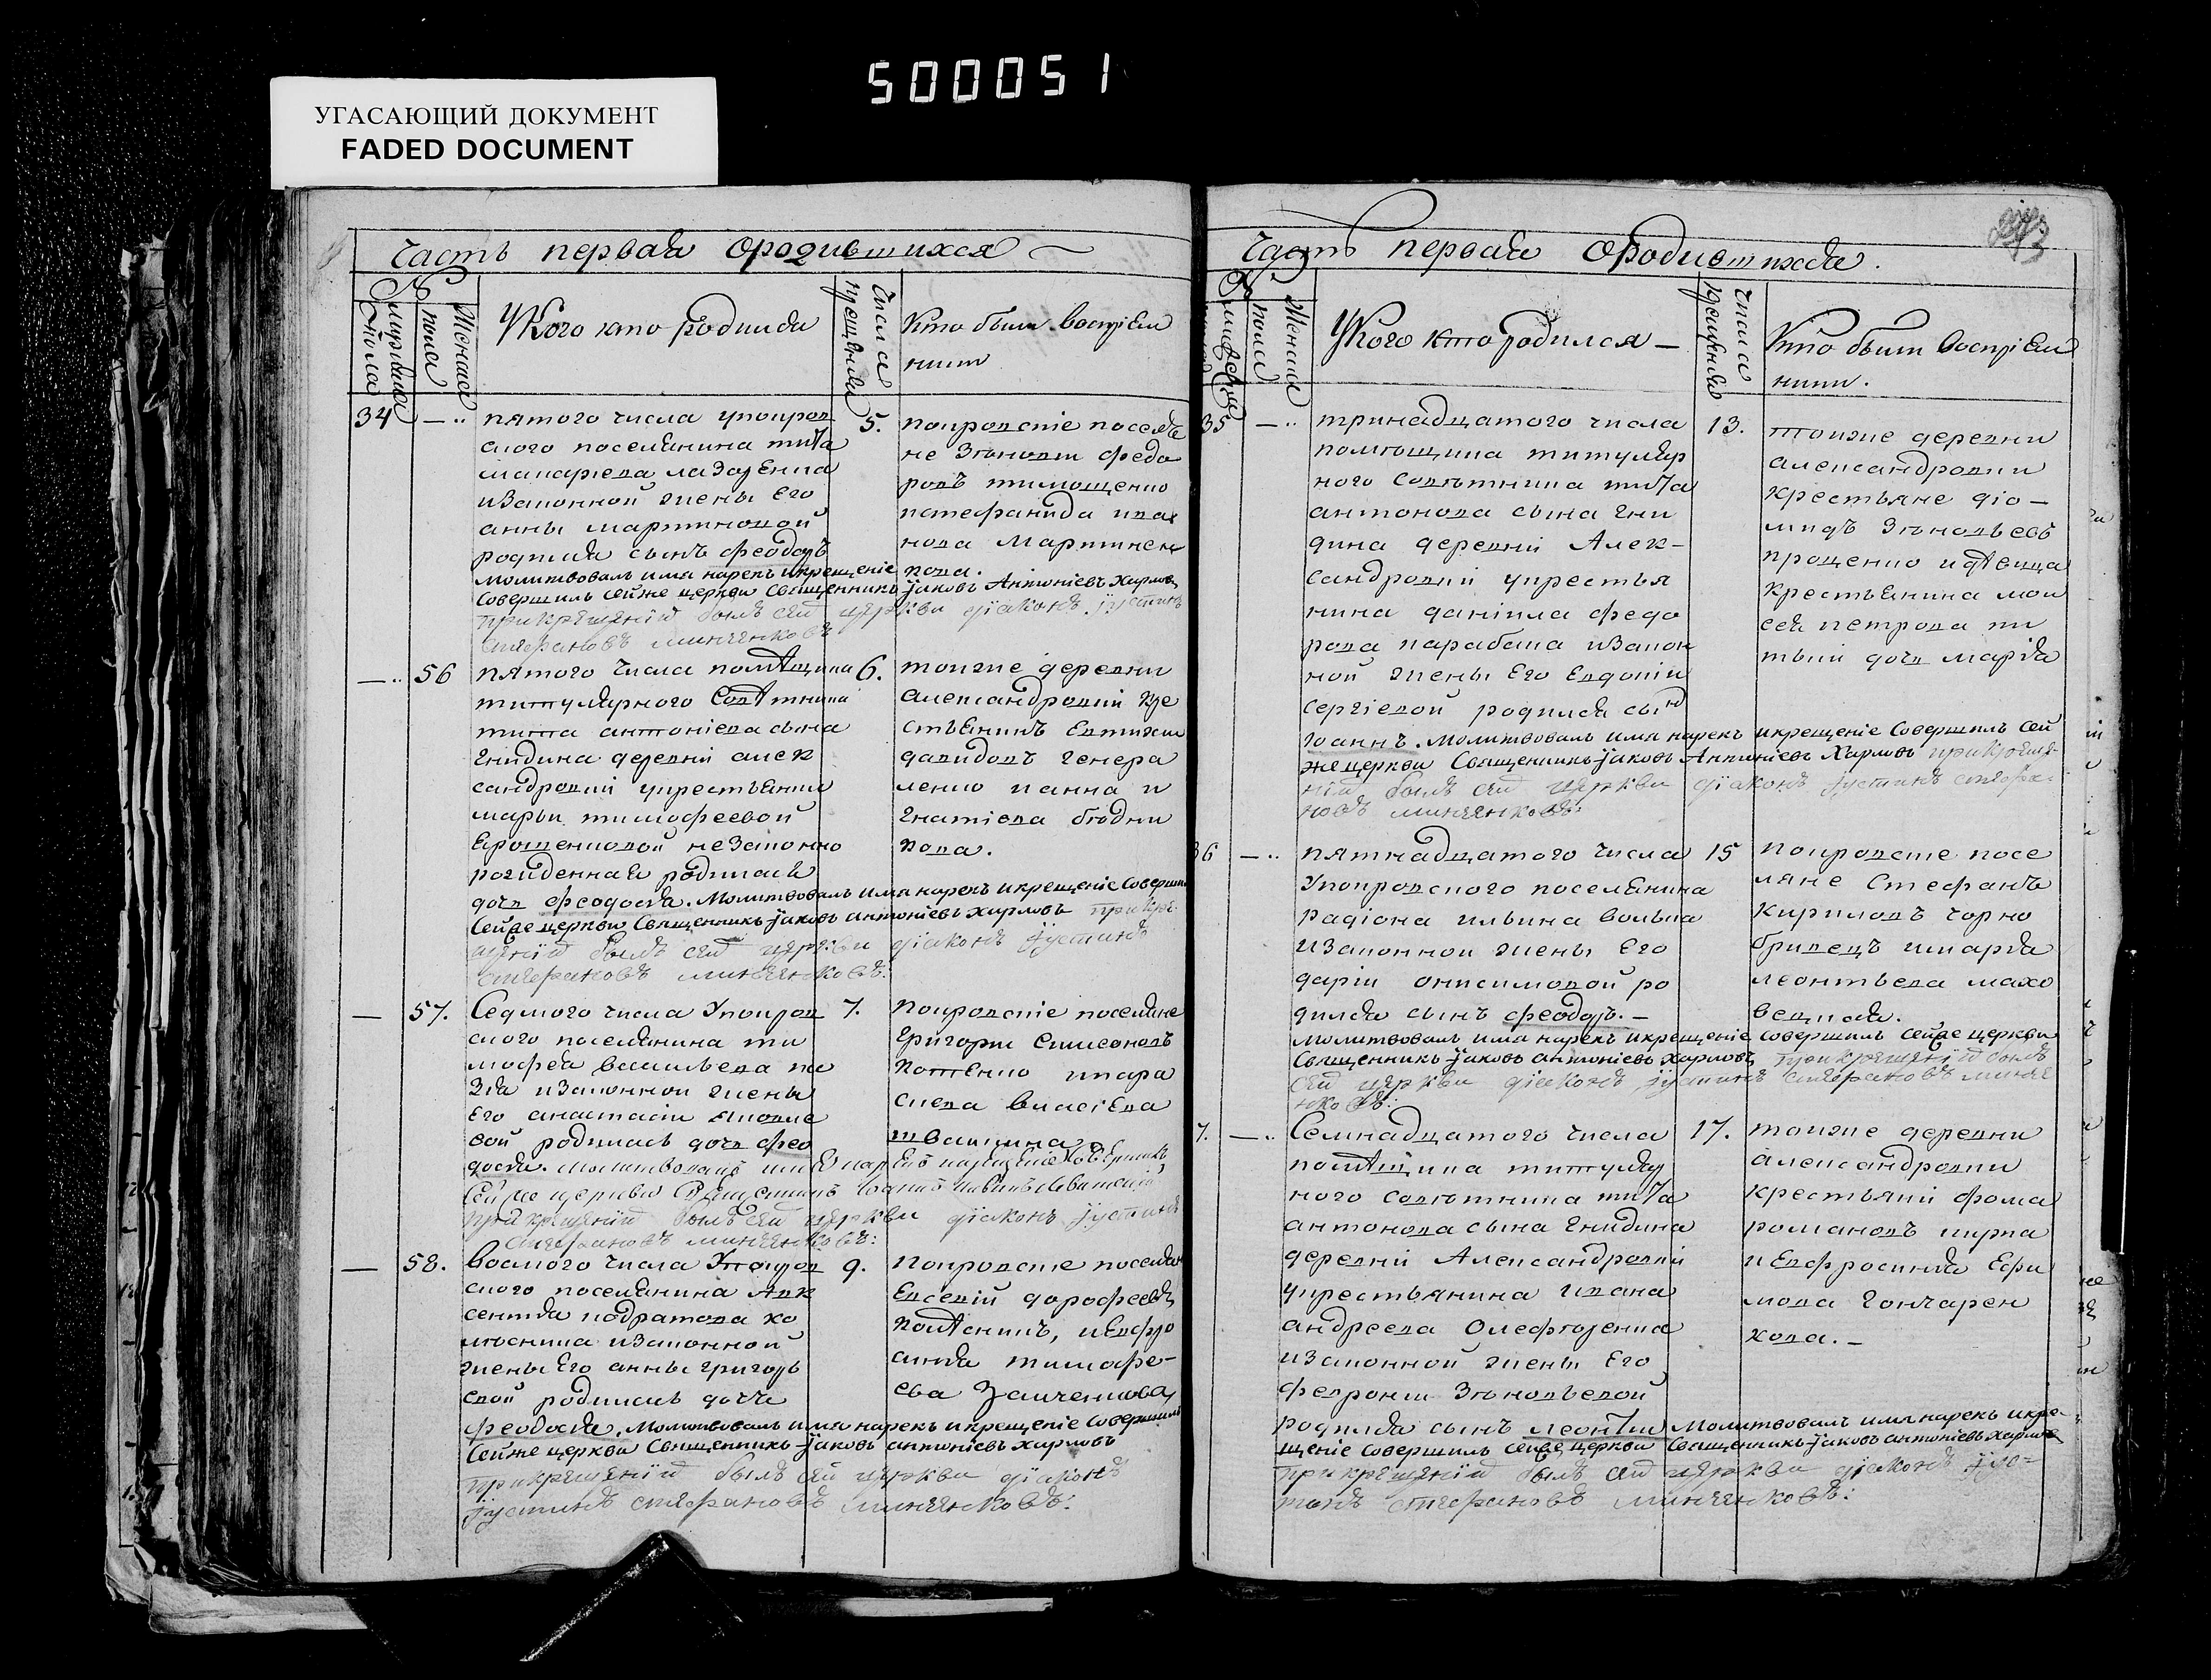 500051
УГАСАЮЩИЙ ДОКУМЕНТ
FADED DOCUMENT
Часть первая ородившихся
№
мужеска пола
женска пола
У Кого кто родился
Числа крещенія
Кто были воспріем
ники
34
пятого числа упокров
ского поселянина тита
макарієва лазоренка
изаконной жены его
анны мартиновой
родился сынъ феодоръ
молитвовалъ имя нарекъ икрещеніе
совершилъ сейже церкви Священникъ Іаковъ Антоніевъ Харловъ
прикрещеніи былъ сей церкви діаконъ Іустинъ
стефановъ миняенковъ
5.
покровскіе поселя
не Зѣновій федо
ровъ тимощенко
истефанида ива
нова Мартинен
кова.
56
пятого числа помѣщика
титулярного Совѣтника
тита антонієва сына
Гнидина деревни алек
сандровки укрестьянки
марьи тимофеевой
Ерошенковой незаконно
рожденная родилась
дочь феодосія. Молитвовалъ имя нарекъ икрещеніе совершилъ
Сейже церкви Священникъ Іаковъ антоніевъ харловъ прикре
щеніи былъ сей церкви діаконъ Іустинъ
стефановъ миняенковъ:
6.
тоиже деревни
александровки кре
стьянинъ Евтихи
давидовъ генера
ленко ианна и
гнатієва бѣдни
кова.
57.
Седмого числа Упокров
ского поселянина ти
мофея васильева
изаконной жены
его анастасіи яковле
вой родилась дочь фео
досія. молитвовалъ имя нарекъ икрещеніе совершилъ
сейже церкви Священникъ
прикрещеніи былъ сей церкви діаконъ Іустинъ
стефановъ миняенковъ:
7.
покровскіе поселяне
Григорій Симеоновъ
Котенко ипара
скева власієва
58.
восмого числа Упокров
ского поселянина Авк
сентія кодратова хо
изаконной
жены Его анны григорь
евой родилась дочь
феодосія. Молитвовалъ имя нарекъ икрещеніе совершилъ
Сейже церкви Священникъ Іаковъ антоніевъ харловъ
прикрещеніи былъ сей церкви діаконъ
Іустинъ стефановъ миняенковъ:
9.
покровскіе поселян
Евсевій дорофеевъ
иЕвфро
синія тимофе-
ева
Часть первая Ородившихся.
№
мужеска
женска пола
У Кого кто родился
числа крещенія
Кто были воспріем
ники.
35
тринадцатого числа
помѣщика титуляр
ного совѣтника тита
антонова сына гни
дина деревни Алек-
сандровки укрестья
нина даніила федо
рова карабаша изакон
ной жены Его Евдокіи
сергієвой родился сын
Іоаннъ. Молитвовалъ имя нарекъ икрещеніе Совершилъ сей
же церкви Священникъ Іаковъ Антоніевъ Харловъ прикреще
ніи былъ сей церкви діаконъ Іустинъ стефа
новъ миняенковъ:
13.
тоиже деревни
александровки
крестьяне діо-
мидъ Зѣновьевъ
проценко идѣвица
крестьянина мои
сея петрова
дочь марія
36
пятнадцатого числа
Упокровского поселянина
радіона ильина волька
изаконной жены Его
даріи онисимовой ро
дился сынъ феодоръ.
молитвовалъ имя нарекъ икрещеніе совершилъ сейже церкви
Священникъ Іаковъ антоніевъ харловъ прикрещеніи былъ
сей церкви діаконъ Іустинъ стефановъ миняе
нковъ:
15
покровскіе посе
ляне Стефанъ
Кириловъ чорно
бривецъ имарія
леонтьева махо
7.
Семнадцатого числа
помѣщика титуляр
ного совѣтника тита
антонова сына Гнидина
деревни Александровки
укрестьянина ивана
андреева
изаконной жены Его
февроніи Зѣновьевой
родился сынъ леонтій Молитвовалъ имя нарекъ икре-
щеніе Совершилъ сейже церкви Священникъ Іаковъ антоніевъ Харловъ
прикрещеніи былъ сей церкви діаконъ Іус-
тинъ стефановъ миняенковъ:
17.
тоиже деревни
александровки
крестьяни фома
романовъ кирпа
иЕвфросинія Ефи
мова Гончарен
кова.